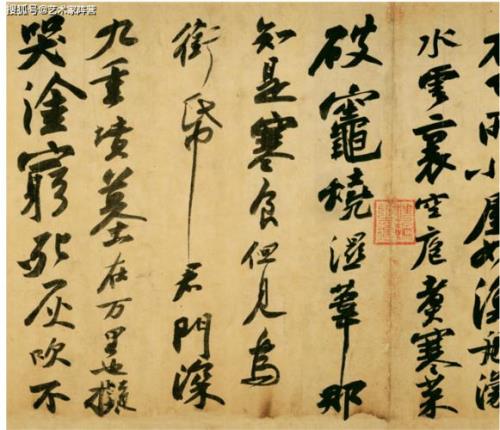 搜狐号@艺术家阵营
不已雨小屋如漁舟濛
水雲裏空庖煮寒菜
破竈燒濕葦那
知是寒食但見烏
銜帋君門深
九重墳墓在万里也擬
哭塗窮死灰吹不